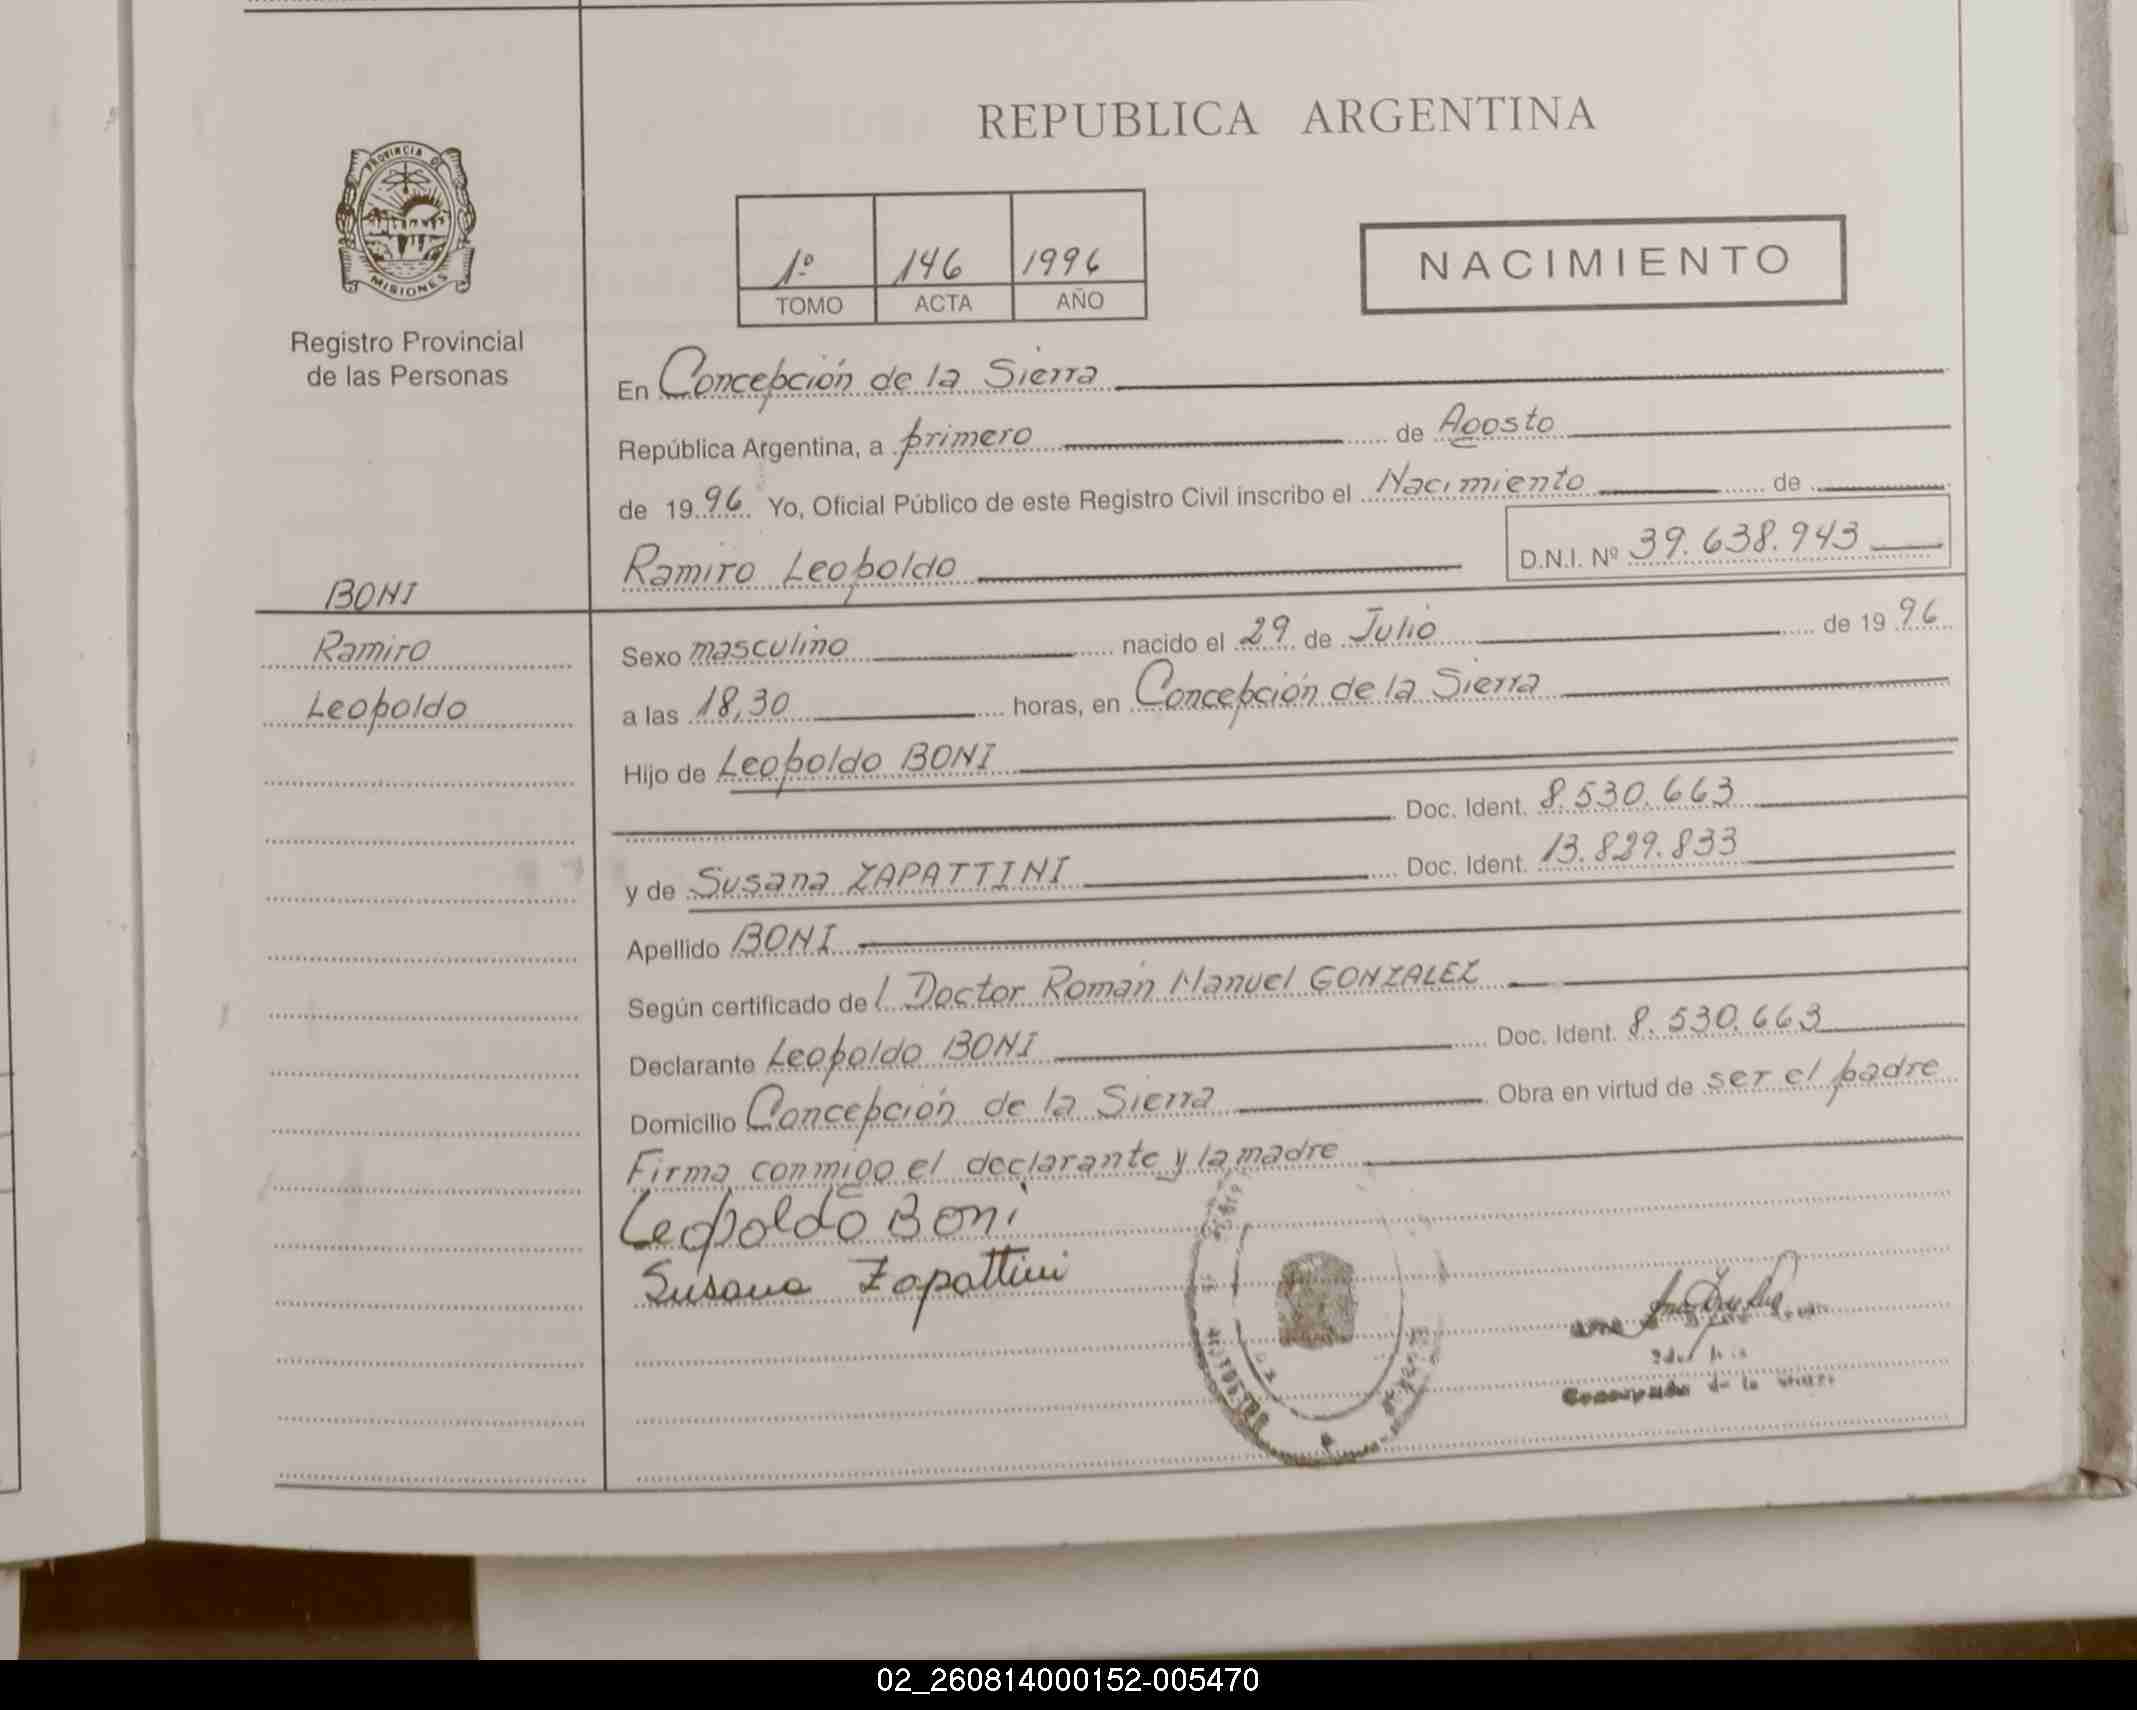 PROVINCIA DE
MISIONES
Registro Provincial
de las Personas
REPUBLICA ARGENTINA
1º 146 1996
TOMO ACTA AÑO
NACIMIENTO
En Concepción de la Sierra
República Argentina, a primero de Agosto
de 1996 Yo, Oficial Público de este Registro Civil inscribo el Nacimiento de
Ramiro Leopoldo D.N.I. Nº 39.638.943
BONI
Ramiro
Leopoldo
Sexo masculino nacido el 29 de Julio de 1996
a las 18,30 horas, en Concepción de la Sierra
Hijo de Leopoldo BONI
Doc. Ident. 8.530.663
y de Susana ZAPATTINI Doc. Ident. 13.829.833
Apellido BONI
Según certificado del Doctor Román Manuel GONZALEZ
Declarante Leopoldo BONI Doc. Ident. 8.530.663
Domicilio Concepción de la Sierra Obra en virtud de ser el padre
Firma conmigo el declarante y la madre
Leopoldo Boni
Susana Zapattini
de la
02_260814000152-005470